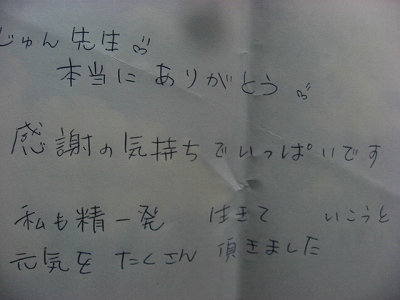 じゅん先生
本当にありがとう
感謝の気持ちでいっぱいです
私も精一発 生きて いこうと
元気を たくさん 頂きました